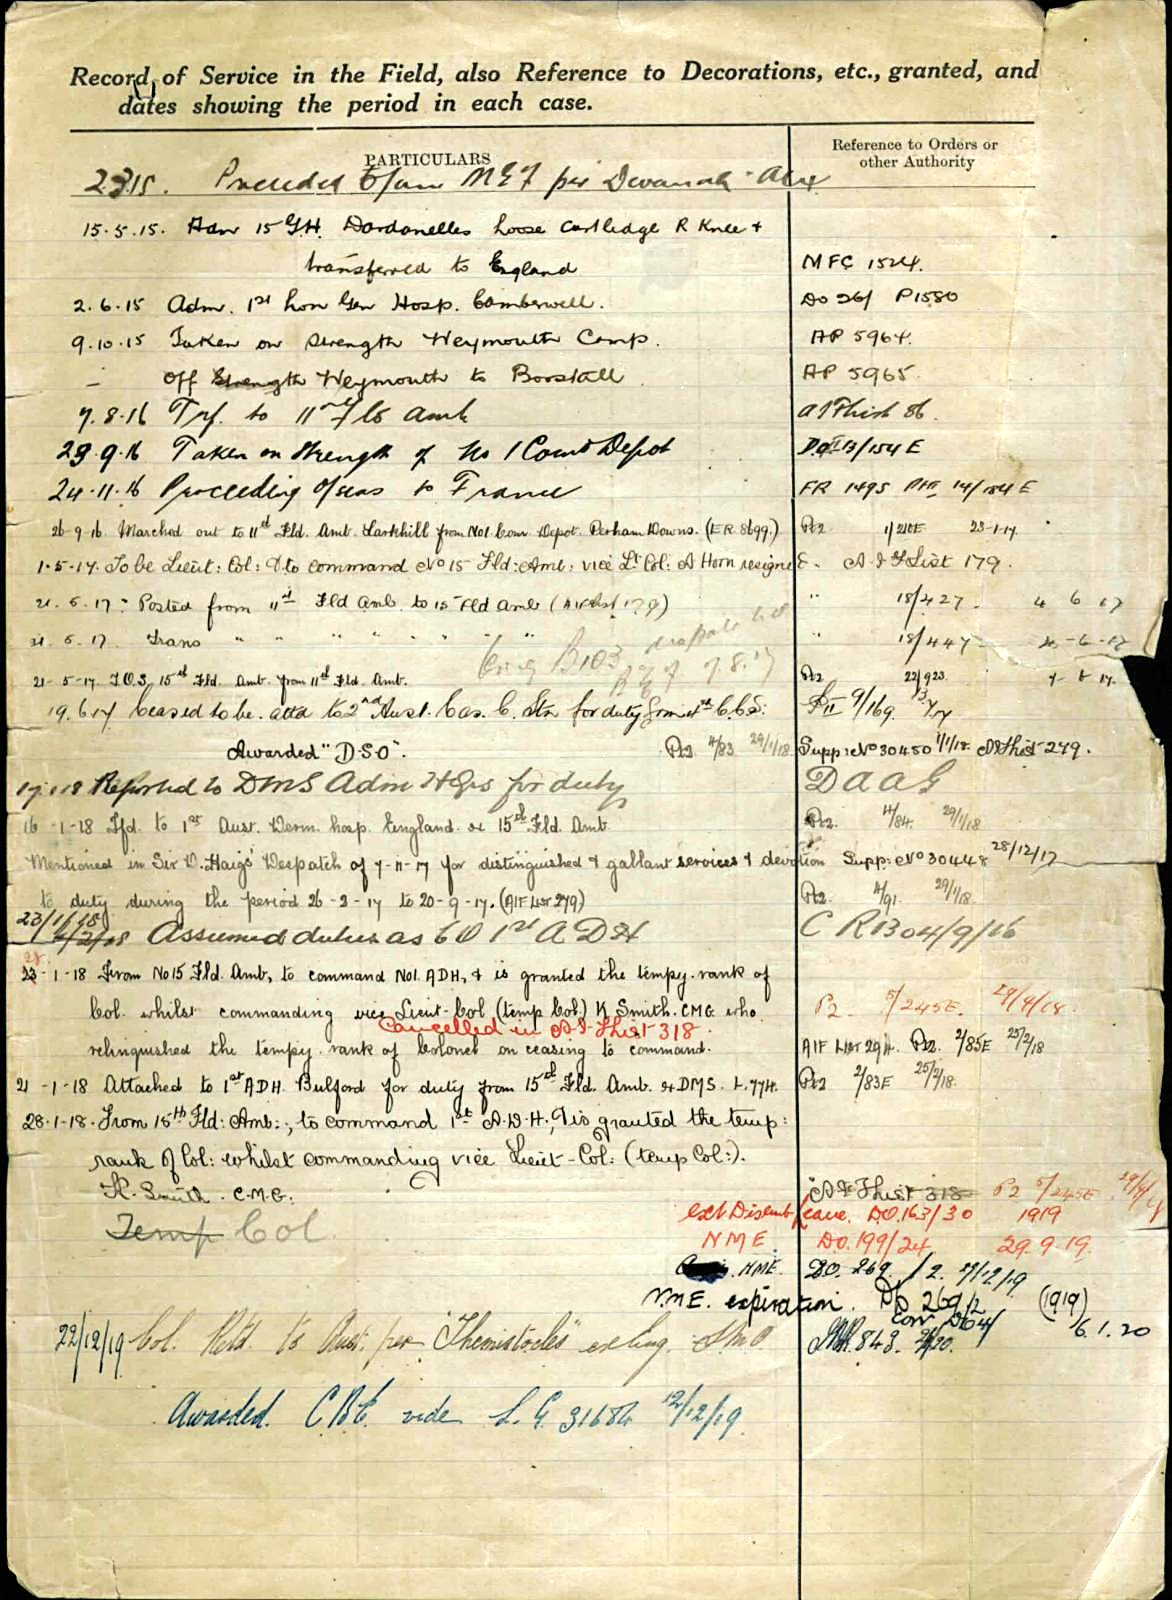 Record of Service in the Field, also Reference to Decorations, etc., granted, and
dates showing the period in each case.
PARTICULARS
Reference to Orders or
other Authority
Proceeded to join MEF per Devanah Alex
15.5.15. Adm 15 G.H. Dardanelles loose cartledge R Knee +
transferred to England MFC 1524.
2.6.15 Adm. 1st Lon Gen Hosp. Camberwell. DO 26/ P1580
9.10.15 Taken on strength Weymouth Camp. AP 5964.
— Off Strength Weymouth to Borstall AP 5965
7.8.16 Trf. to 11th Fld Amb 86.
29.9.16 Taken on Strength of No 1 Comd Depot 13/154 E
24.11.16 Proceeding O/seas to France FR 1495 PtII 14/154 E
26-9-16 Marched out to 11th Fld. Amb. Larkhill from No1. Com. Depot. Perham Downs. (ER 8699.) Pt2 1/210E 23-1-17.
1.5.17. To be Lieut: Col: & to command No 15 Fld: Amb: vice Lt Col: A Horn resigned. A.I.F List 179.
21.5.17. Posted from 11th Fld Amb. to 15 Fld Amb (AIF List 179) " 18/427 4 6 17
21.5.17. Trans " " " " " " " " 18/447
21-5-17. T.O.S. 15th Fld. Amb. from 11th Fld. Amb. Pt2 22/923
B103 7.8.17
19.6.17 Ceased to be attd to 2nd Aust. Cas. C. Stn for duty from 4th C.C.S. PII 9/169
Awarded "D.S.O". Pt2 4/83 29/1/18 Supp: No 30450 1/1/18. AIF List 279.
Reported to DMS Adm HQrs for duty DAAG
16-1-18 Tfd. to 1st Aust. Derm. hosp. England. ex 15th Fld. Amb Pt2. 4/84. 29/1/18
Mentioned in Sir D. Haig's Despatch of 7-11-17 for distinguished & gallant services & devotion Supp: No 30448 28/12/17
to duty during the period 26-2-17 to 20-9-17. (AIF List 279) Pt2. 4/91 29/1/18.
23/1/18
Assumed duties as CO 1st A D H C R 1304/9/16
28
23-1-18 From No15 Fld. Amb, to command No1. ADH, & is granted the tempy. rank of
Col. whilst commanding vice Lieut-Col (temp Col.) K Smith. CMG who P2 5/245E. 29/4/18.
Cancelled in A.I.F List 318.
relinquished the tempy. rank of Colonel on ceasing to command. AIF List 294. Pt2. 2/85E 25/2/18
21-1-18 Attached to 1st ADH. Bulford for duty from 15th Fld. Amb. ex DMS. L. 774. Pt2 2/83E 25/2/18.
28.1.18. From 15th Fld: Amb:, to command 1st A.D.H., & is granted the temp:
rank of Col: whilst commanding vice Lieut-Col: (temp Col:).
K. Smith. C.M.G. A I F List 318 P2 5/245E
Temp Col
ext Disemb leave. D.O. 163/30 1919
NME DO. 199/24 29.9.19.
NME. DO. 269. /2. 27/12/19
N.M.E. expiration. DO 269/2 (1919)
corr 6.1.20
22/12/19 Col. Retd. to Aust. per "Themistocles" S.M.O 843.
Awarded. C.B.E. vide L.G. 31684 12/12/19.